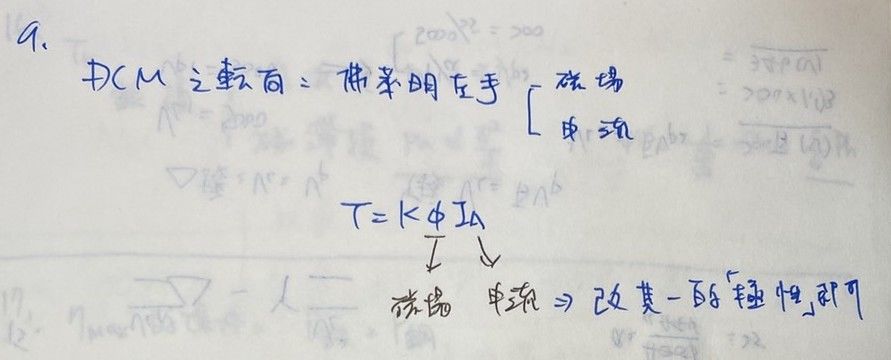 9.
DCM 之転向：佛萊明左手 磁場
電流
T = KφIA
磁場 電流 ⇒ 改其一的「極性」即可